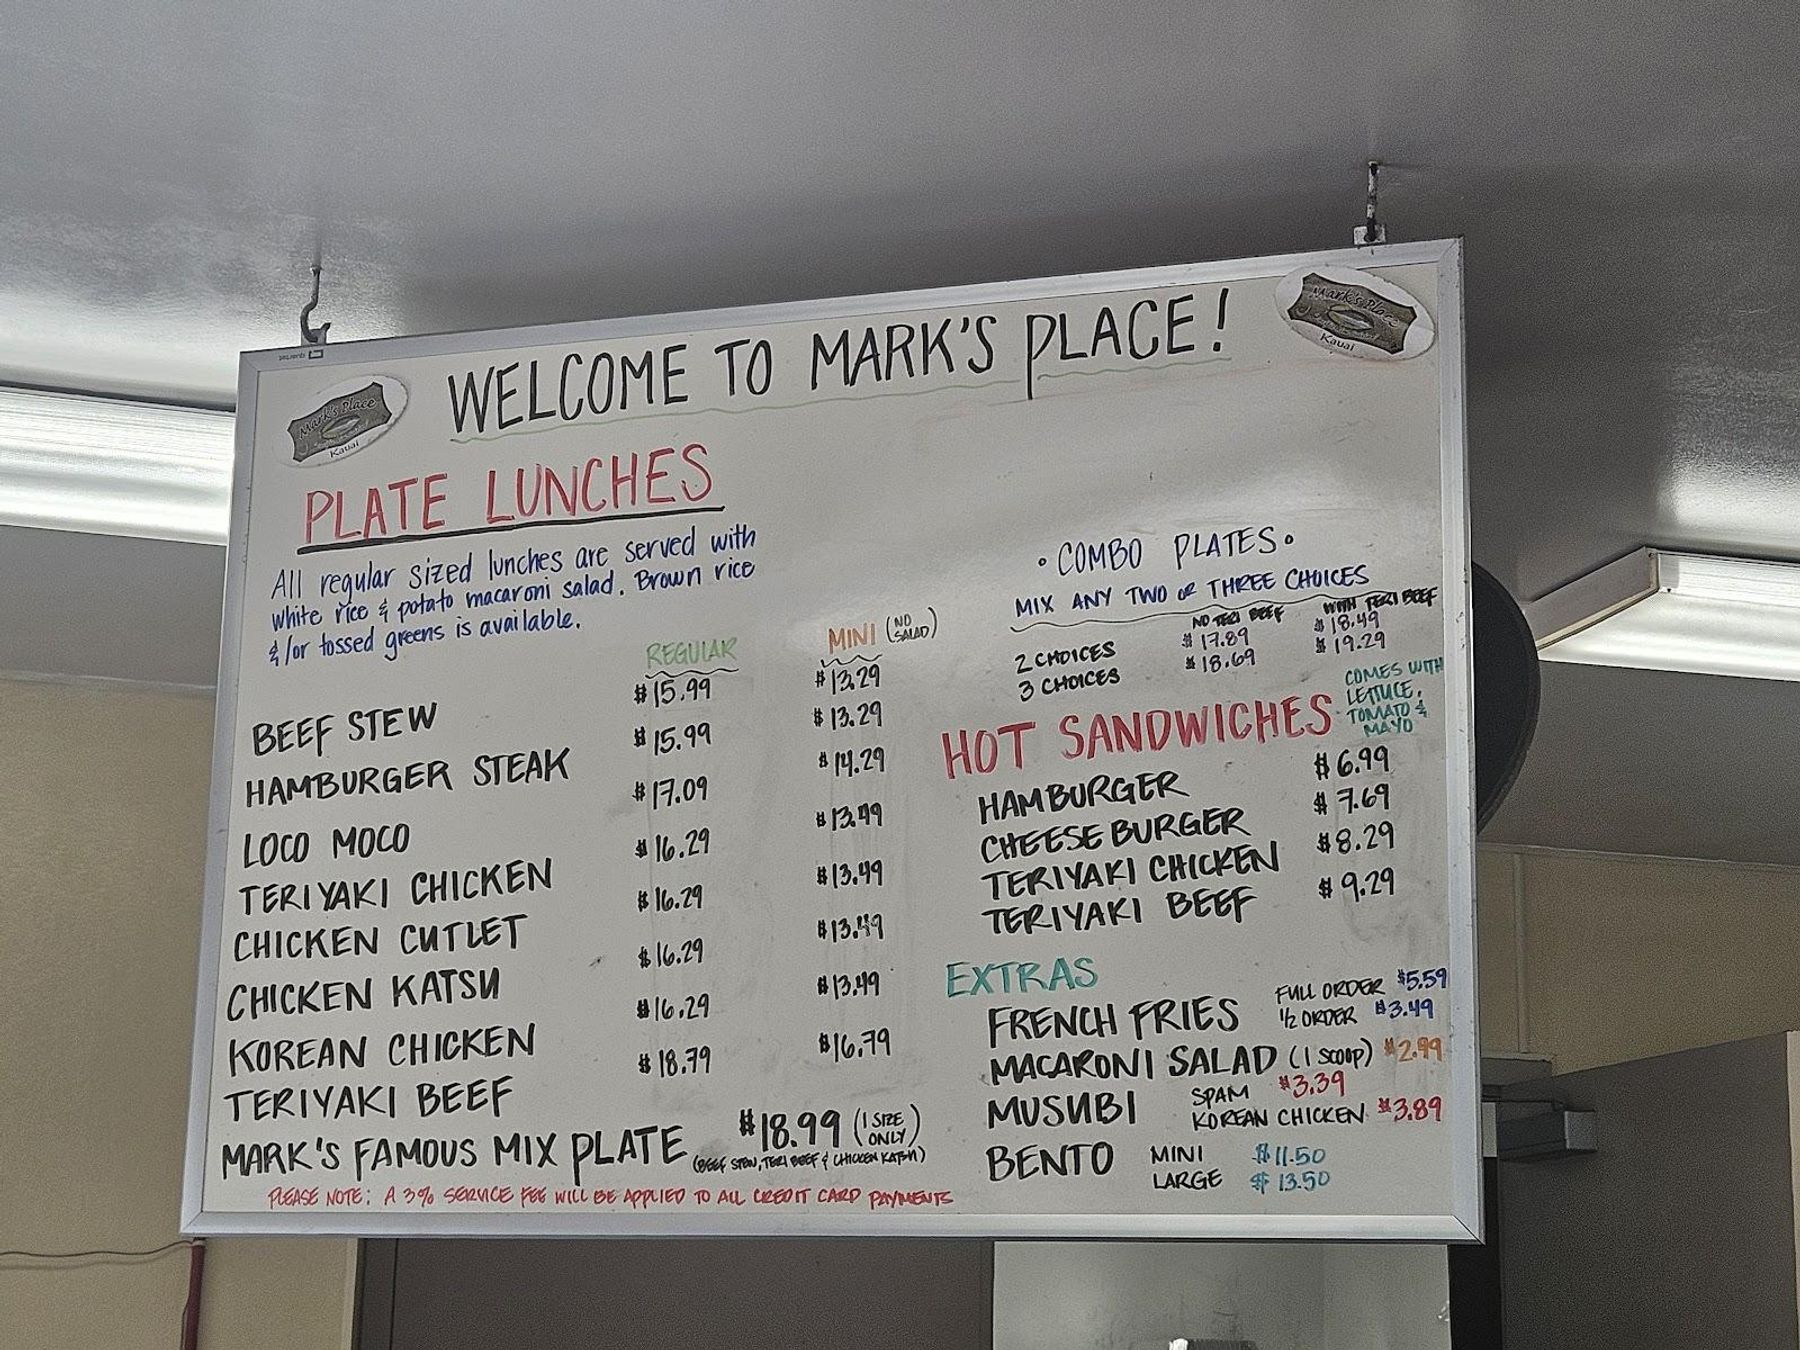 WELCOME TO MARK'S PLACE!
Mark's Place
Kauai
Mark's Place
Kauai
PLATE LUNCHES
All regular sized lunches are served with
white rice & potato macaroni salad. Brown rice
&/or tossed greens is available.
REGULAR MINI (NO SALAD)
BEEF STEW $15.99 $13.29
HAMBURGER STEAK $15.99 $13.29
LOCO MOCO $17.09 $14.29
TERIYAKI CHICKEN $16.29 $13.49
CHICKEN CUTLET $16.29 $13.49
CHICKEN KATSU $16.29 $13.49
KOREAN CHICKEN $16.29 $13.49
TERIYAKI BEEF $18.79 $16.79
MARK'S FAMOUS MIX PLATE $18.99 (1 SIZE ONLY)
(BEEF STEW, TERI BEEF & CHICKEN KATSU)
PLEASE NOTE: A 3% SERVICE FEE WILL BE APPLIED TO ALL CREDIT CARD PAYMENTS
• COMBO PLATES •
MIX ANY TWO OR THREE CHOICES
NO TERI BEEF WITH TERI BEEF
2 CHOICES $17.89 $18.49
3 CHOICES $18.69 $19.29
HOT SANDWICHES
COMES WITH
LETTUCE,
TOMATO &
MAYO
HAMBURGER $6.99
CHEESEBURGER $7.69
TERIYAKI CHICKEN $8.29
TERIYAKI BEEF $9.29
EXTRAS
FRENCH FRIES FULL ORDER $5.59
1/2 ORDER $3.49
MACARONI SALAD (1 SCOOP) $2.99
MUSUBI SPAM $3.39
KOREAN CHICKEN $3.89
BENTO MINI $11.50
LARGE $13.50